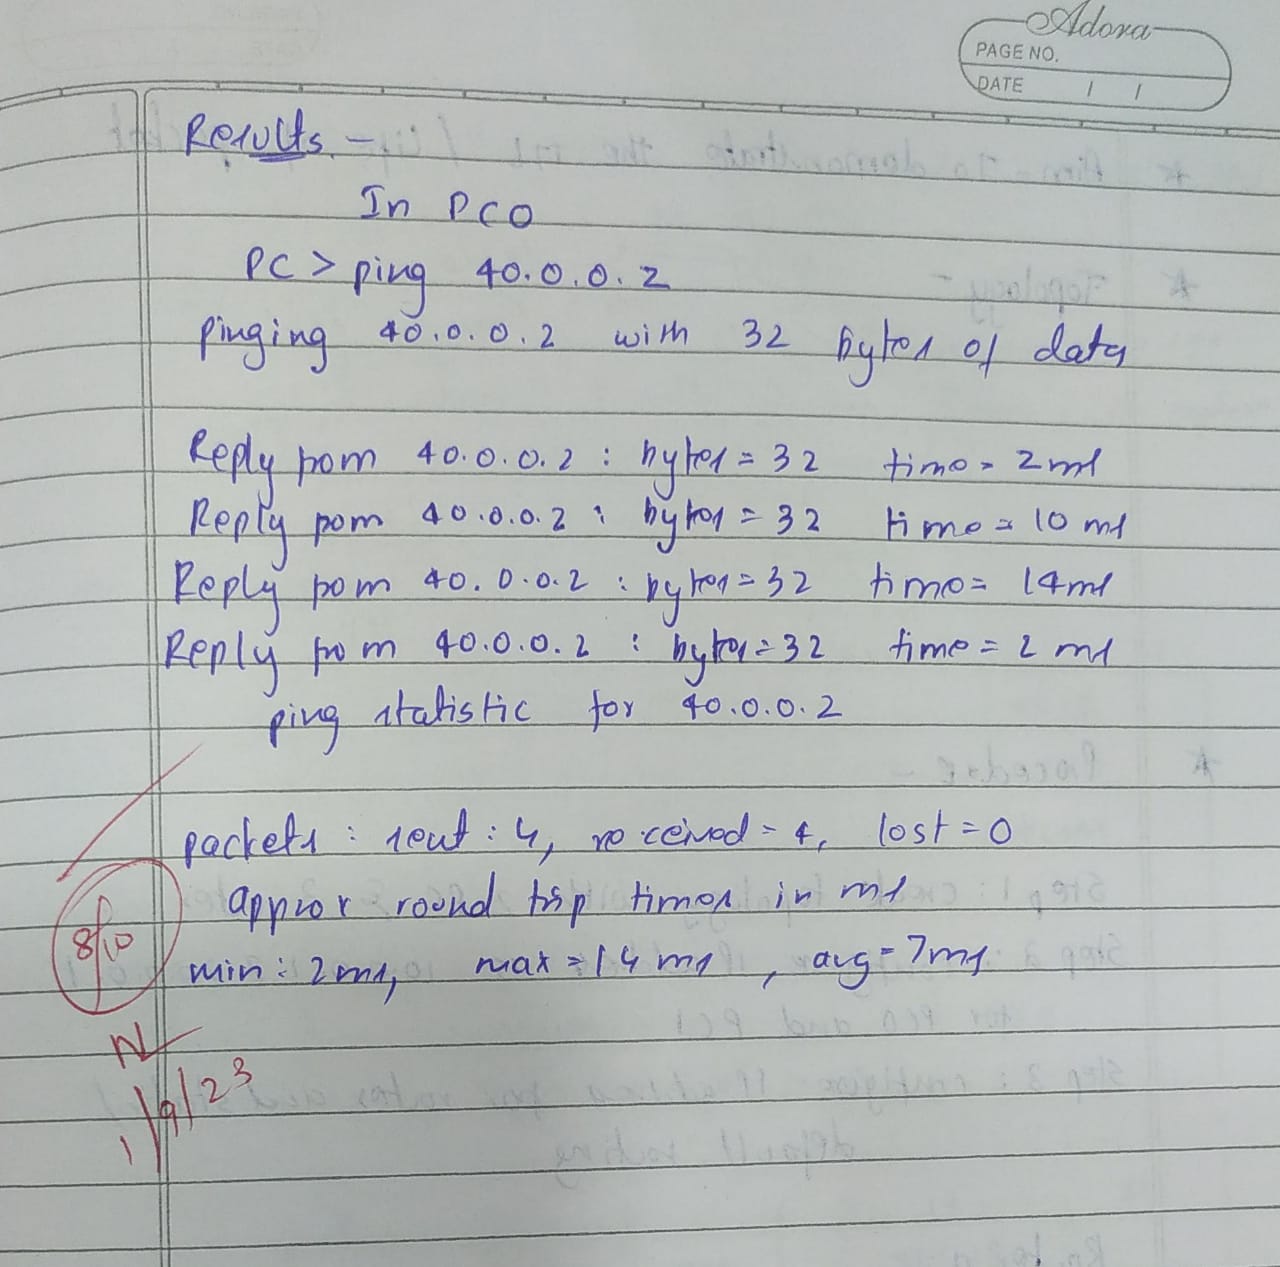 Adora
PAGE NO.
DATE / /
Results -
In PC0
PC > ping 40.0.0.2
pinging 40.0.0.2 with 32 bytes of data
Reply from 40.0.0.2 : bytes = 32 time = 2ms
Reply from 40.0.0.2 : bytes = 32 time = 10 ms
Reply from 40.0.0.2 : bytes = 32 time = 14ms
Reply from 40.0.0.2 : bytes = 32 time = 2 ms
ping statistic for 40.0.0.2
packets : sent : 4, received = 4, lost = 0
approx round trip times in ms
min : 2ms, max = 14 ms, avg = 7ms
8/10
N
1/9/23